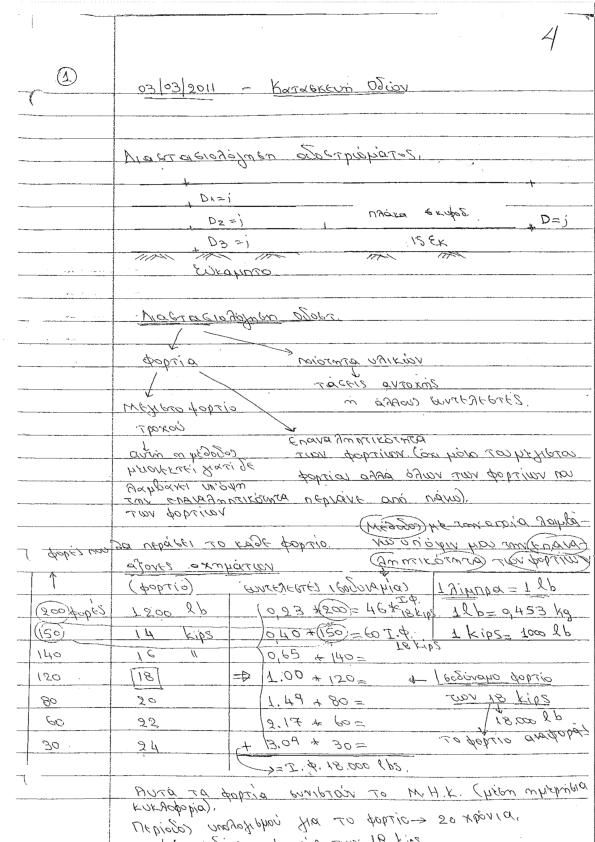 4
1
03/03/2011 - Κατασκευή Οδών
Διαστασιολόγηση οδοστρώματος.
D1=;
D2=; πλάκα σκυροδ. D=;
D3=; 15 εκ
Εύκαμπτο
Διαστασιολόγηση οδοστ.
φορτία ποιότητα υλικών
τάσεις αντοχής
Μέγιστο φορτίο ή άλλους συντελεστές.
τροχού
Επαναληπτικότητα
αυτή η μέθοδος των φορτίων (όχι μόνο του μέγιστου
μειονεκτεί γιατί δε φορτίου αλλά όλων των φορτίων που
λαμβάνει υπόψη
την επαναληπτικότητα περνάνε από πάνω).
των φορτίων
Μέθοδος με την οποία λαμβά-
φορές που θα περάσει το κάθε φορτίο. νω υπόψιν μου την επανα-
άξονες οχημάτων ληπτικότητα των φορτίων
(φορτίο) συντελεστές (ισοδυναμία) 1 λίμπρα = 1 lb
200 φορές 1200 lb 0,23 * 200 = 46 * Ι.Φ. 18 kips 1 lb = 0,453 kg
150 14 kips 0,40 * 150 = 60 Ι.Φ. 18 kips 1 kips = 1000 lb
140 16 " 0,65 * 140 =
120 18 ⇒ 1.00 * 120 = ← Ισοδύναμο φορτίο
80 20 1.49 * 80 = των 18 kips
60 22 2.17 * 60 = 18.000 lb
30 24 + 3.09 * 30 = το φορτίο αναφοράς
= Ι.Φ. 18.000 lbs.
Αυτά τα φορτία συνιστούν το Μ.Η.Κ. (μέση ημερήσια
κυκλοφορία).
Περίοδος υπολογισμού για το φορτίο → 20 χρόνια.
των 18 kips